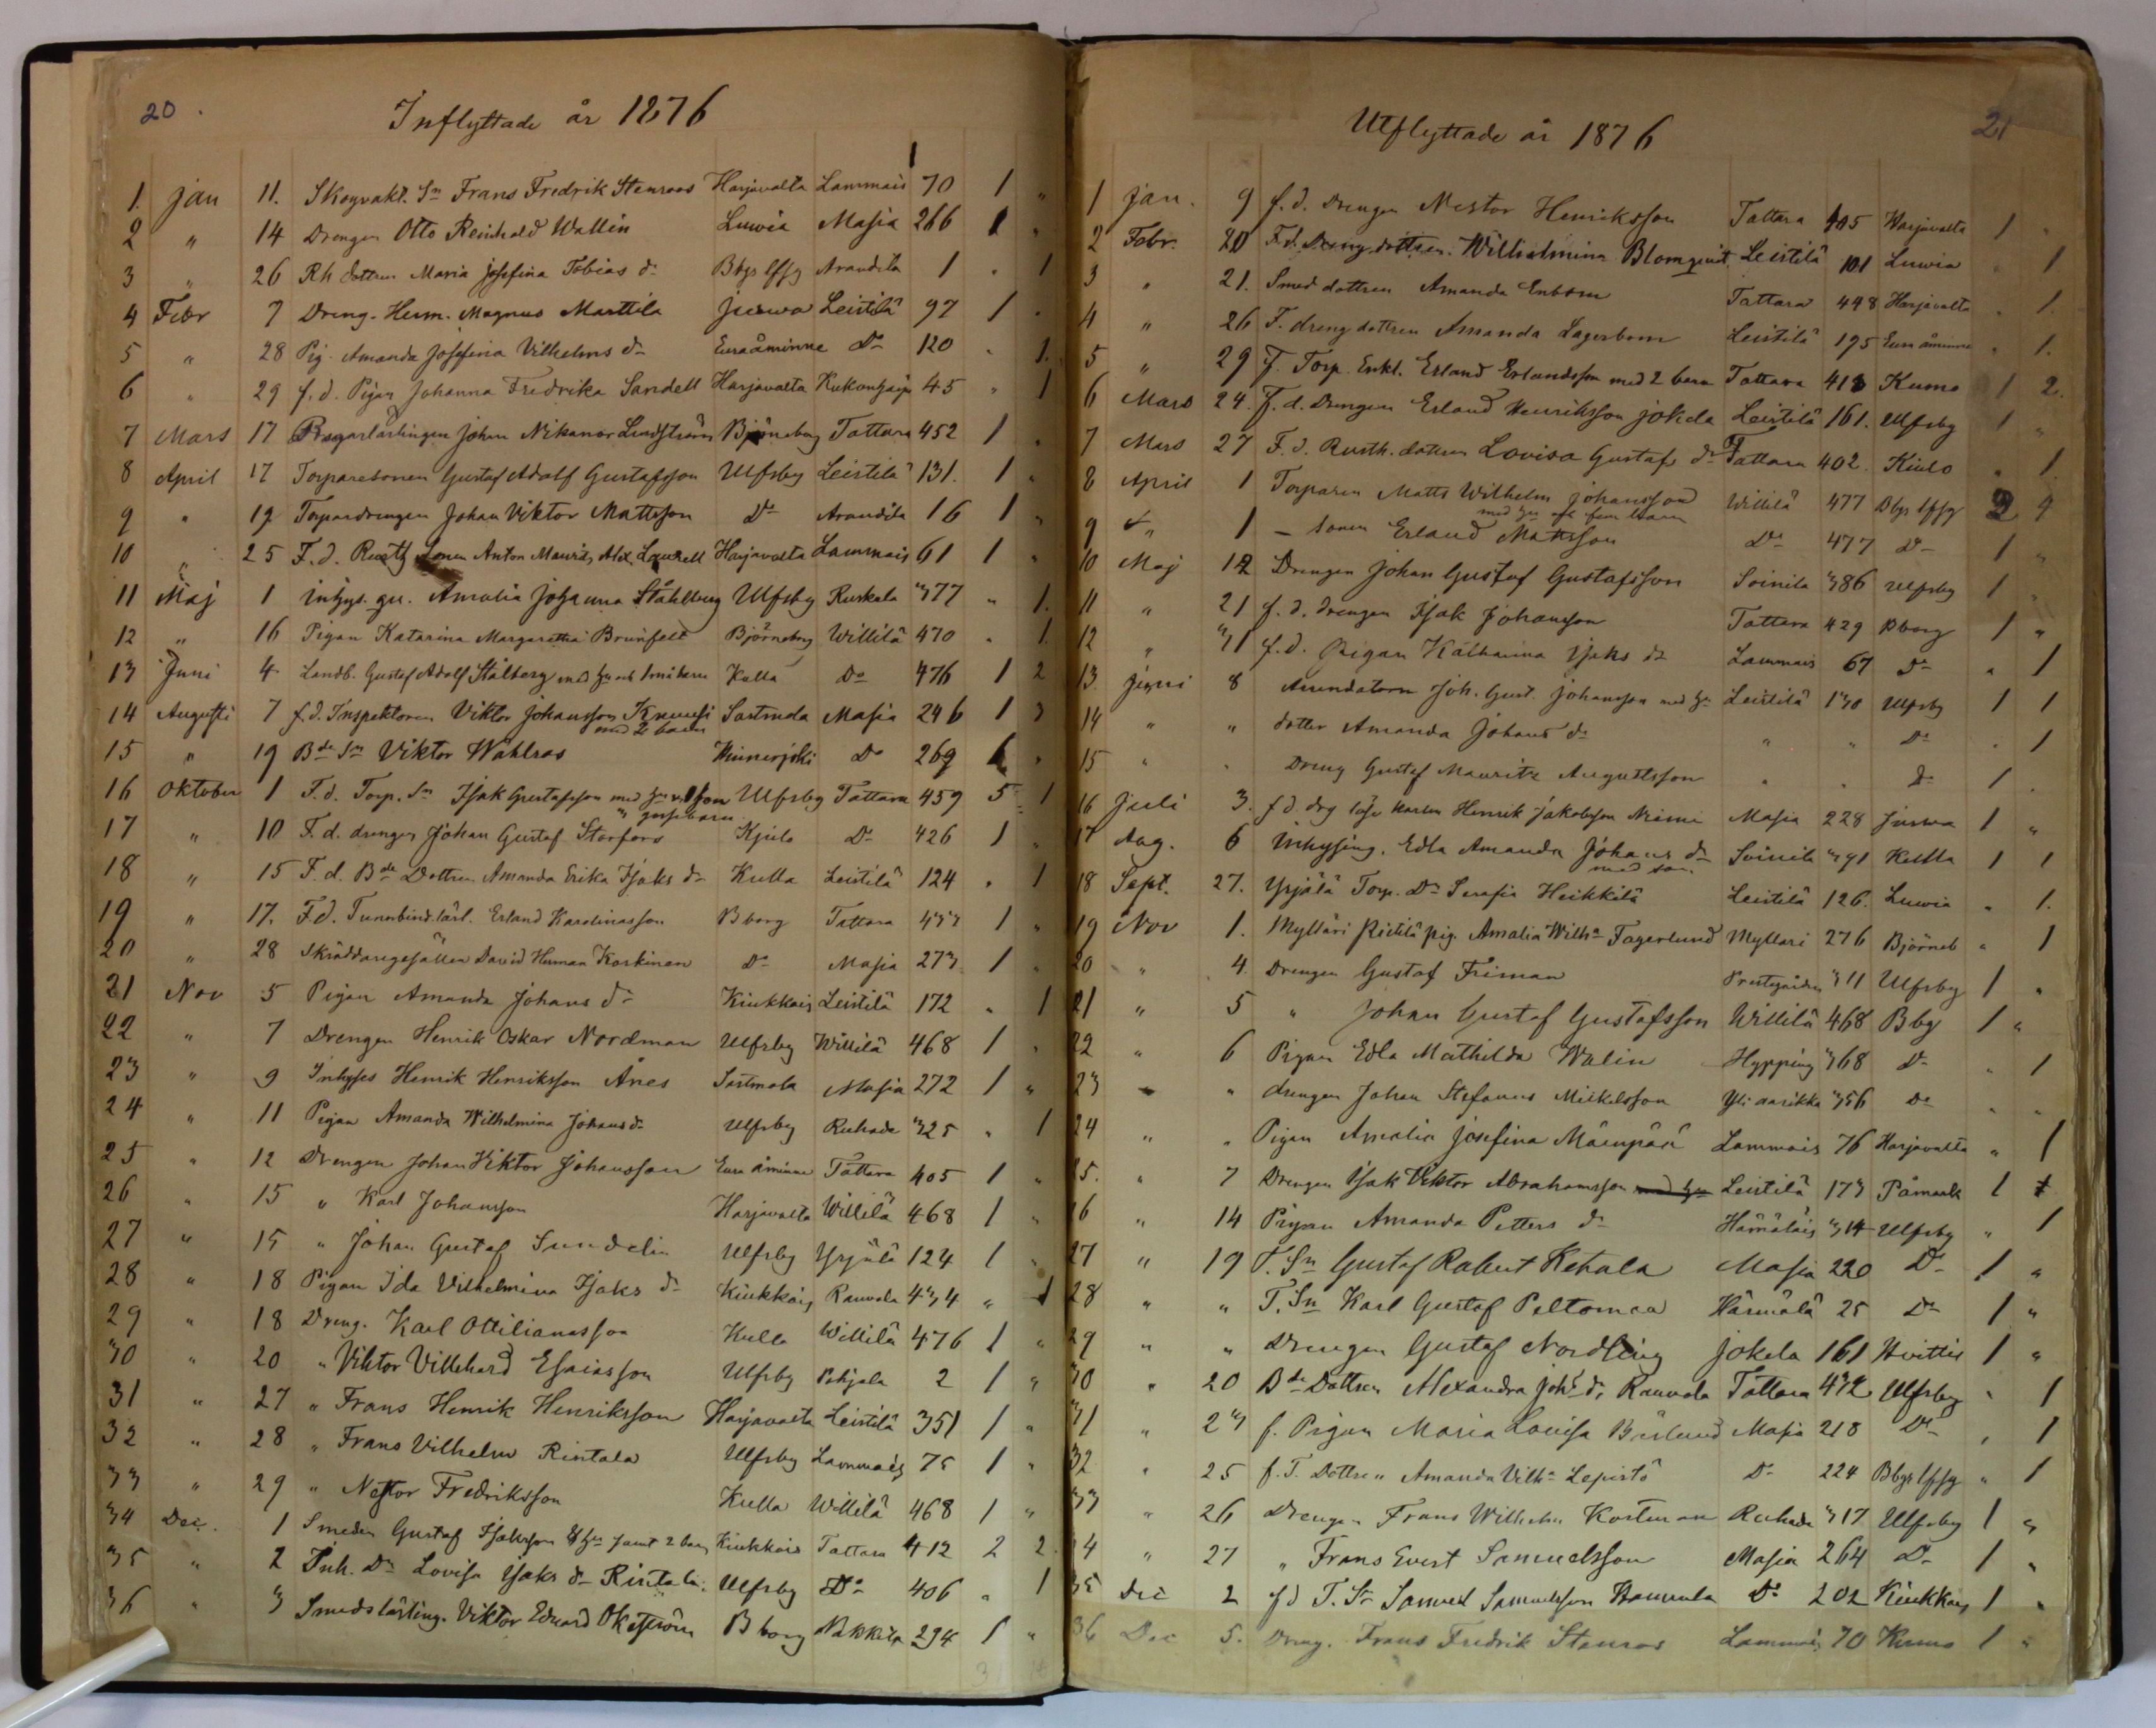 20.
Inflyttade år 1876
1
1. Jan 11. Skogvakt. Sn Frans Fredrik Stenroos Harjavalta Lammais 70 1 "
2 " 14 Drengen Otto Reinhold Wallin Luvia Masia 266 1 "
3 " 26 Rh dottren Maria Josefina Tobias dr Bbgs lfsg Arandila 1 " 1
4 Febr 7 Dreng. Herm. Magnus Marttila Juswa Leistilä 97 1 "
5 " 28 Pig. Amanda Josefina Vilhelms dr Euraåminne Do 120 " 1.
6 " 29 f.d. Pigan Johanna Fredrika Sandell Harjavalta 45 " 1
7 Mars 17 Johan Nikanor Lindström Björneborg Tattara 452 1 "
8 April 17 Torparesonen Gustaf Adolf Gustafsson Ulfsby Leistilä 131. 1 "
9 " 19 Torparedrengen Johan Viktor Mattsson Do Arandila 16 1 "
10 " 25 F.d. Rusth sonen Anton Maurits Alex. Laurell Harjavalta Lammais 61 1 "
11 Maj 1 Inhys. qu. Amalia Johanna Ståhlberg Ulfsby Ruskela 377 " 1.
12 " 16 Pigan Katarina Margaretha Brunfelt Björneborg Willilä 470 " 1.
13 Juni 4 Landb. Gustaf Adolf Stålberg med hu och 1 mi barn Kulla Do 476 1 2
14 Augusti 7 f.d. Inspektoren Viktor Johansson Knuusi Sastmola Masia 246 1 3
med 2 barn
15 " 19 Bde Sn Viktor Wählroos Hinnerjoki Do 269 1 "
16 Oktober 1 F.d. Torp. Sn Isak Gustafsson med hu Ulfsby Tattara 459 5 1
gossebarn
17 " 10 F.d. drengen Johan Gustaf Storfors Kjulo Do 426 1 "
18 " 15 F.d. Bde Dottren Amanda Erika Isaks dr Kulla Leistilä 124 " 1
19 " 17. F.d. Tunnbind. lärl. Erland Karolinasson Bborg Tattara 433 1 "
20 " 28 Skräddaregesällen David Herman Koskinen Do Masia 273 1 "
21 Nov 5 Pigan Amanda Johans dr Kiukkais Leistilä 172 " 1
22 " 7 Drengen Henrik Oskar Nordman Ulfsby Willilä 468 1 "
23 " 9 Inhyses Henrik Henriksson Ånes Sastmola Masia 272 1 "
24 " 11 Pigan Amanda Wilhelmina Johans dr Ulfsby Ruhade 325 " 1
25 " 12 Drengen Johan Viktor Johansson Eura åminne Tattara 405 1 "
26 " 15 " Karl Johansson Harjavalta Willilä 468 1 "
27 " 15 " Johan Gustaf Sundelin Ulfsby Yrjälä 124 1 "
28 " 18 Pigan Ida Vilhelmina Isaks dr Kiukkais Rauvola 434 " 1
29 " 18 Dreng. Karl Ottilianasson Kulla Willilä 476 1 "
30 " 20 " Viktor Villehard Esaiasson Ulfsby Pohjala 2 1 "
31 " 27 " Frans Henrik Henriksson Harjavalta Leistilä 351 1 "
32 " 28 " Frans Vilhelm Rintala Ulfsby Lammais 75 1 "
33 " 29 " Nestor Fredriksson Kulla Willilä 468 1 "
34 Dec. 1 Smeden Gustaf Isaksson & hu samt 2 barn Kiukkais Tattara 412 2 2
35 " 2 Inh. Dr Lovisa Isaks dr Rintala Ulfsby Do 406 " 1
36 " 3 Smedslärling. Viktor Eduard Okeström Bborg Nakkila 294 1 "
21
Utflyttade år 1876
1 Jan. 9 f.d. Drengen Nestor Henriksson Tattara 405 Harjavalta 1 "
2 Febr. 20 F.d. Dreng dottren Wilhelmina Blomqvist Leistilä 101 Luvia " 1
3 " 21. Smed dottren Amanda Enbom Tattara 448 Harjavalta " 1.
4 " 26 F. dreng dottren Amanda Lagerbom Leistilä 195 Eura åminne " 1.
5 " 29 F. Torp. Enkl. Erland Erlandsson med 2 barn Tattara 418 Kumo 1 2.
6 Mars 24. F.d. Drengen Erland Henriksson Jokela Leistilä 161. Ulfsby 1 "
7 Mars 27 F.d. Rusth. dottren Lovisa Gustafs dr Tattara 402. Kiulo " 1
8 April 1 Torparen Matts Wilhelm Johansson Willilä 477 Bbgs lfsg 2 4
med hu och fem barn
9 " 1 - sonen Erland Mattsson Do 477 Do 1 "
10 Maj 12 Drengen Johan Gustaf Gustafsson Soinila 386 Ulfsby 1 "
11 " 21 f.d. drengen Isak Johansson Tattara 429 Bborg 1 "
12 " 31 f.d. Pigan Katharina Isaks dr Lammais 67 Do " 1
13 Juni 8 Arendatorn Joh. Gust. Johansson med hu Leistilä 130 Ulfsby 1 1
14 " " dotter Amanda Johans dr " " Do " 1
15 " " Dreng Gustaf Mauritz Augustsson " " Do 1 "
16 Juli 3. f d drg lös karlen Henrik Jakobsson Niemi Masia 228 Juswa 1 "
17 Aug. 6 Inhysing. Edla Amanda Johans dr Soinila 391 Kulla 1 1
med son
18 Sept. 27. Yrjälä Torp. Dr Serafia Heikkilä Leistilä 126. Luvia " 1.
19 Nov 1. Mylläri Ristilä pig. Amalia Wilha Fagerlund Myllari 276 Björneb " 1
20 " 4. Drengen Gustaf Friman Prestgården 311 Ulfsby 1 "
21 " 5 " Johan Gustaf Gustafsson Willilä 468 Bbg 1 "
22 " 6 Pigan Edla Mathilda Walin Hypping 368 Do " 1
23 " " drengen Johan Stefanus Mickelsson Yli aarikka 356 Do " "
24 " " Pigan Amalia Josefina Mäenpää Lammais 76 Harjavalta " 1
25. " 7 Drengen Isak Viktor Abrahamsson med hu Leistilä 173 Påmark 1 1
26 " 14 Pigan Amanda Petters dr Hämäläis 314 Ulfsby " 1
27 " 19 T. Sn Gustaf Robert Ketala Masia 220 Do 1 "
28 " " T. Sn Karl Gustaf Peltomaa Härmälä 25 Do 1 "
29 " " Drengen Gustaf Nordling Jokela 161 Hvittis 1 "
30 " 20 Bde Dottren Alexandra Johs dr Rauvola Tattara 432 Ulfsby " 1
31 " 23 f. Pigan Maria Lovisa Bärlund Masia 218 Do " 1
32 " 25 f. T. Dottren Amanda Vilha Lepistö Do 224 Bbgs lfsg " 1
33 " 26 Drengen Frans Wilhelm Kortman Ruhade 317 Ulfsby 1 "
34 " 27 " Frans Evert Samuelsson Masia 264 Do 1 "
35 Dec 2 f d T. Sn Samuel Samuelsson Do 202 Kiukkais 1 "
36 Dec 5. Dreng. Frans Fredrik Stenros Lammais 70 Kumo 1 "